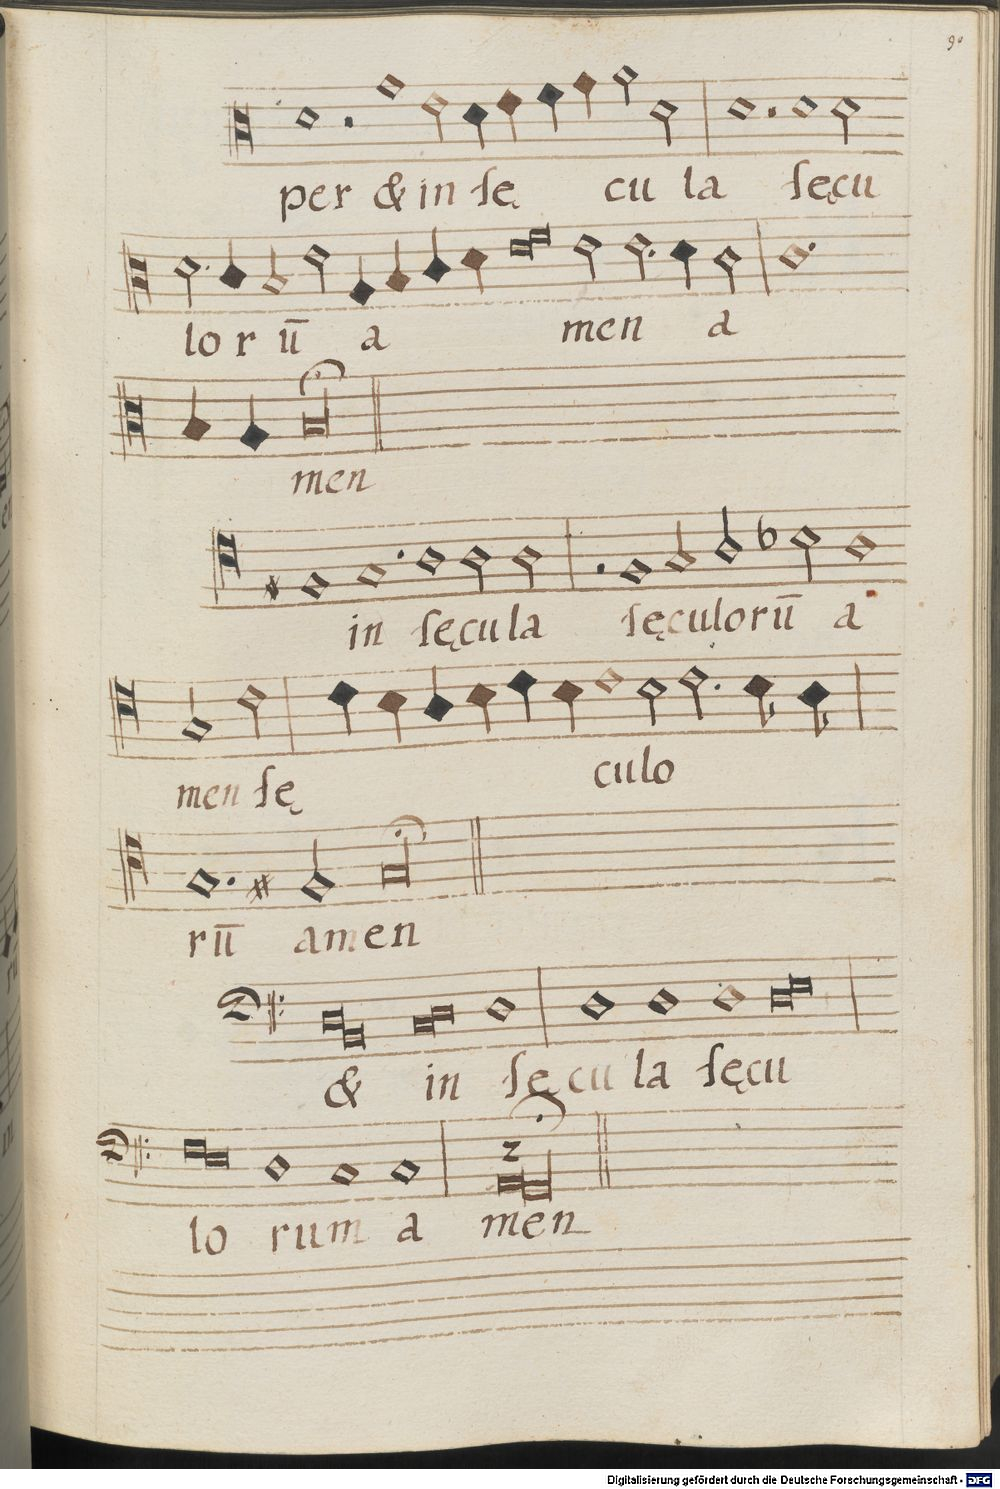 90
per & in ſę cu la ſęcu
lo r ū a men a
men
in ſęcula ſęculorū a
men ſę culo
rū amen
& in ſę cu la ſęcu
lo rum a men
Digitalisierung gefördert durch die Deutsche Forschungsgemeinschaft - DFG